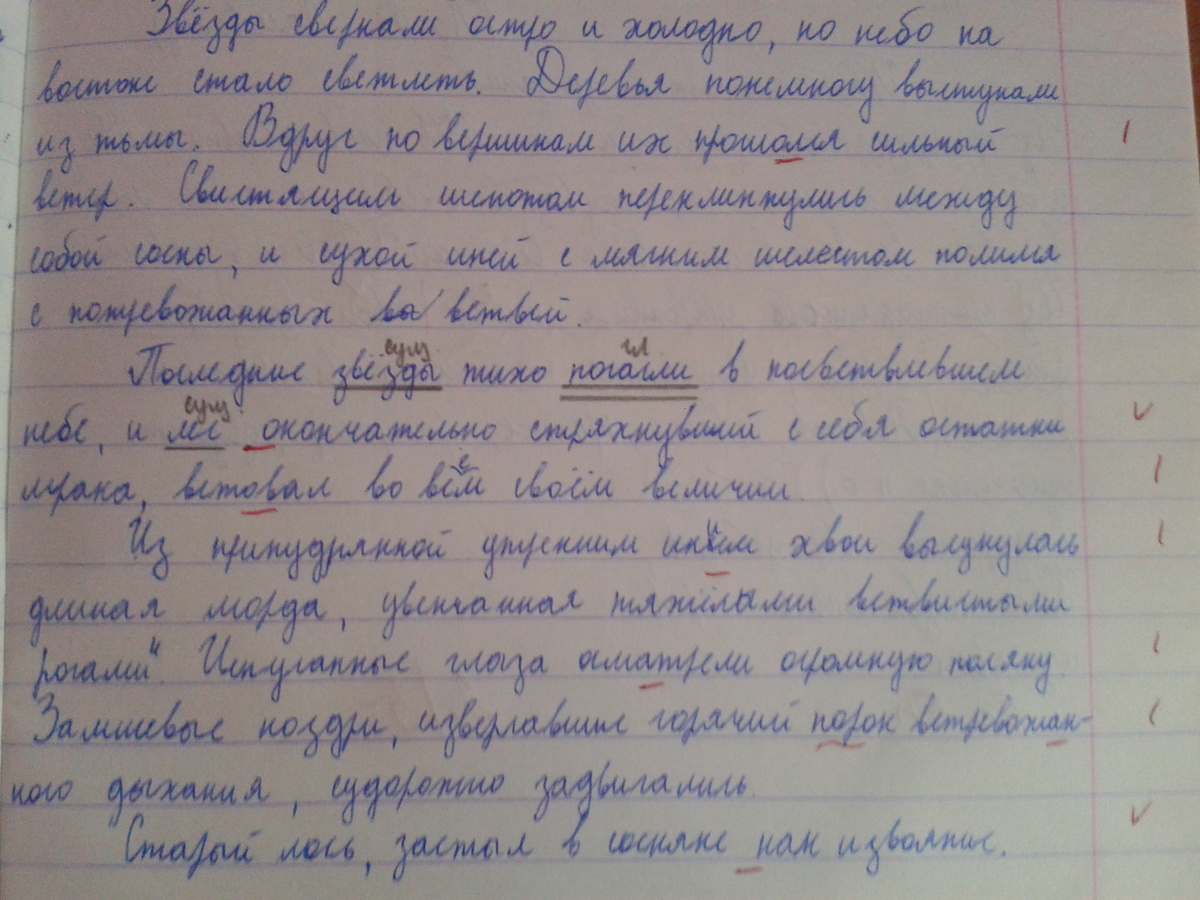 Звёзды сверкали остро и холодно, но небо на
востоке стало светлеть. Деревья понемногу выступали
из тьмы. Вдруг по вершинам их прошолся сильный
ветер. Свистящим шепотом переклинулись между
собой сосны, и сухой иней с мягким шелестом полился
с потревожанных ветвей.
сущ гл
Последние звёзды тихо погасли в посветвлевшем
сущ
небе, и лес окончательно стряхнувший с себя остатки
мрака, встовал во всём своём величии.
Из припудрянной утренним инием хвои высунулась
длиная морда, увенчанная тяжёлами ветвистыми
рогами". Испуганные глаза аматрели огромную поляну.
Замшевые ноздри, извергавшие горячий порок встревожан-
ного дыхания, судорожно задвигались.
"Старый лось, застыл в сосняке как изваяние.